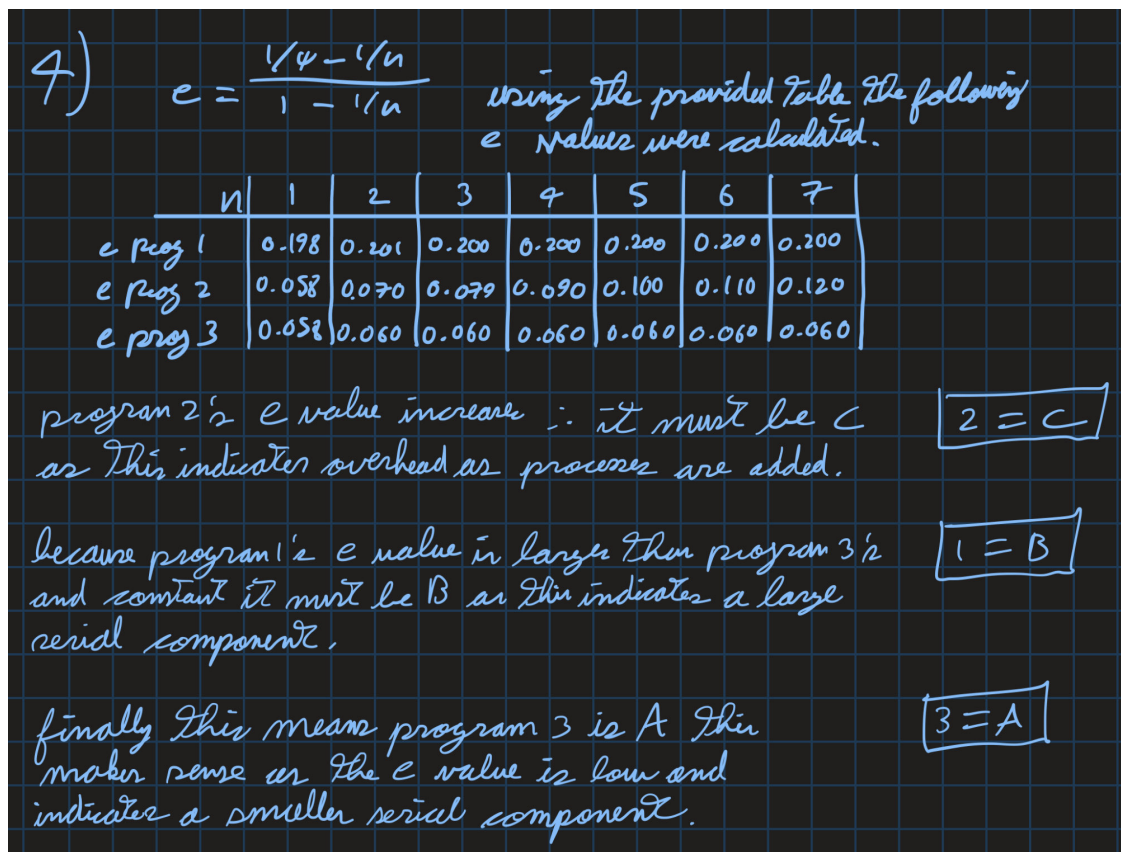 4) e = (1/ψ - 1/n) / (1 - 1/n) using the provided Table The following
e values were calculated.
n 1 2 3 4 5 6 7
e prog 1 0.198 0.201 0.200 0.200 0.200 0.200 0.200
e prog 2 0.058 0.070 0.079 0.090 0.100 0.110 0.120
e prog 3 0.058 0.060 0.060 0.060 0.060 0.060 0.060
program 2's e value increase ∴ it must be C 2 = C
as This indicates overhead as processes are added.
because program 1's e value is larger Than program 3's 1 = B
and constant it must be B as this indicates a large
serial component.
finally This means program 3 is A This 3 = A
makes sense as the e value is low and
indicates a smaller serial component.